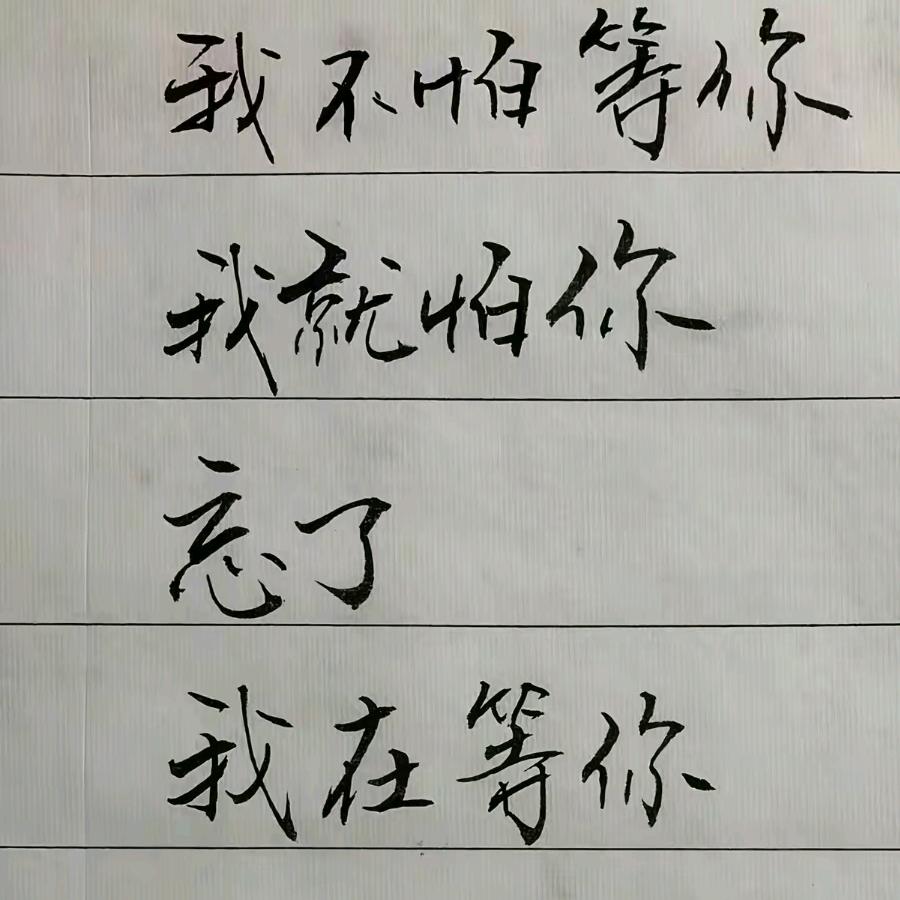 我不怕等你
我就怕你
忘了
我在等你